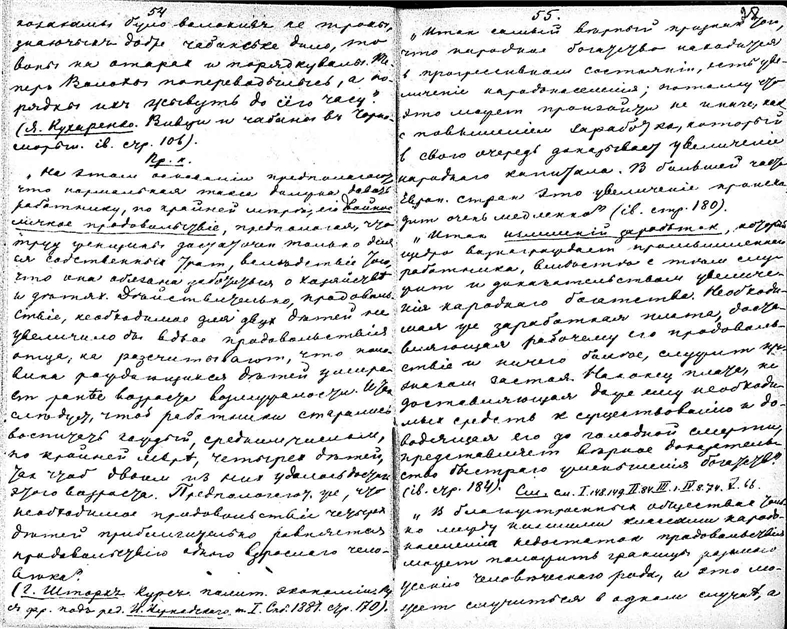 54
козакамы було волокивъ не трохы,
знаючыхъ добре чабанське дило, то
воны на отарах и порядкувалы. Те-
перь Волохы поперевадылысь, а по-
рядкы ихъ зсывуть до сёго часу."
(Я. Кухаренко. Вивци и чабаны въ Черно-
морьи. ib. стр. 106).
Пр. к.
"На этомъ основании предполагают,
что нормальная такса должна давать
работнику, по крайней мѣрѣ, его двойное
личное продовольствіе, предполагая, что
трудъ женщины достаточен только для
ея собственных трат, вслѣдствіе того,
что она обязана заботиться о хозяйствѣ
и дѣтях. Дѣйствительно, продоволь-
ствіе, необходимое для двух дѣтей не
увеличило бы вдвое продовольствія
отца, но разсчитывают, что поло-
вина рождающихся дѣтей умира-
ет ранѣе возраста возмужалости. Из
слѣдует, чтоб работники старались
воспитать каждый, средним числом,
по крайней мѣрѣ, четырех дѣтей,
так чтоб двоим из них удалось достич
этого возраста. Предполагают же, что
необходимое продовольствіе четырех
дѣтей приблизительно равняется
продовольствію одного взрослаго чело-
вѣка".
(Г. Шторхъ Курсъ полит. экономіи, пер
съ фр. подъ ред. И. Вернадского, т. I. Спб. 1881. стр. 170).
55.
"Итак самый вѣрный признак того,
что народное богатство находится
в прогрессивном состояніи, есть уве-
личеніе народонаселенія; потому что
это может произойти не иначе, как
с повышением заработка, который
в свою очередь доказывает увеличеніе
народнаго капитала. В большей части
Европ. стран это увеличеніе происхо-
дит очень медленно" (ib. стр. 180).
"Итак излишній заработок, который
щедро вознаграждает промышленнаго
работника, вмѣстѣ с тѣм слу-
жит и доказательством увеличе-
нія народнаго богатства. Необходи-
мая же заработная плата, доста-
вляющая рабочему его продоволь-
ствіе и ничего болѣе, служит при-
знаком застоя. Наконец плата, не
доставляющая даже ему необходи-
мых средств к существованію и до-
водящая его до голодной смерти,
представляет вѣрное доказатель-
ство быстраго уменьшенія богатств".
(ib. стр. 184). См. I. 148. 149. II. 84. III. 1. IV. 8. 74. V. 66.
"В благоустроенных обществах толь-
ко между низшими классами народо-
населенія недостаток продовольствія
может положить границы размно-
женію человѣческаго рода, и это мо-
жет случиться в одном случаѣ, а